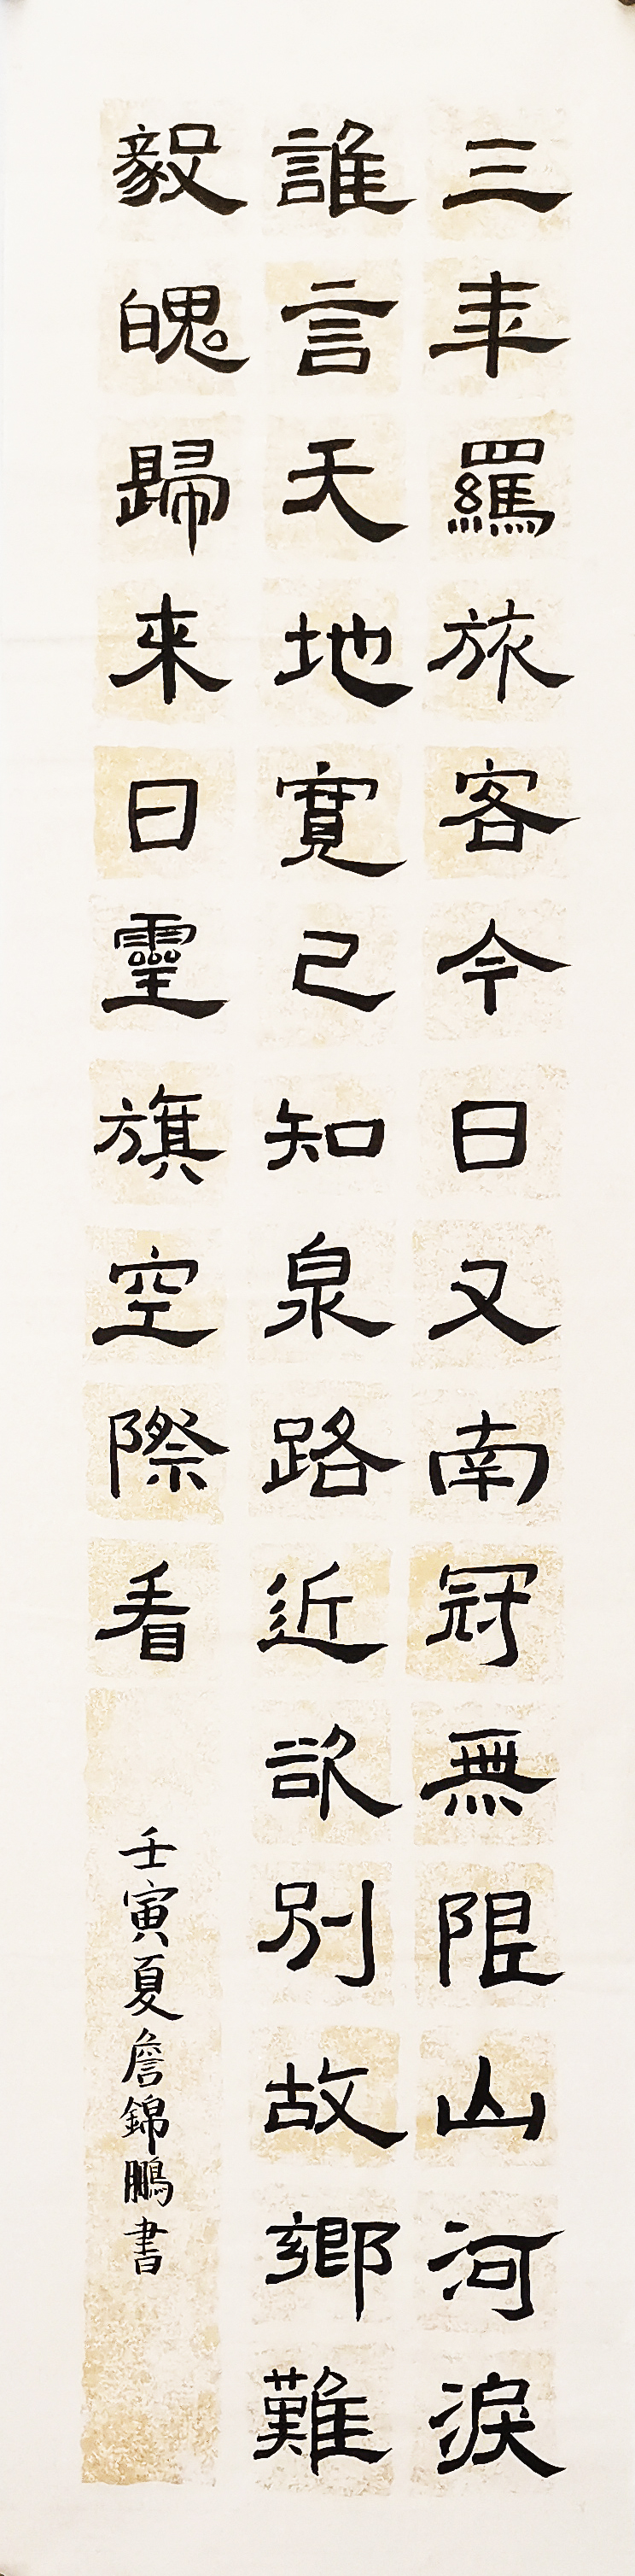 三年羈旅客今日又南冠無限山河淚
誰言天地寬已知泉路近欲別故鄉難
毅魄歸來日靈旗空際看
壬寅夏詹錦鵬書